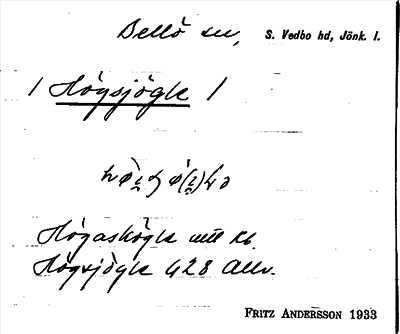 Bellö sn, S. Vedbo hd, Jönk. l.
/ Högsjögle /
Högaskögle utt kb.
Högsjögle 428 Allv.
FRITZ ANDERSSON 1933